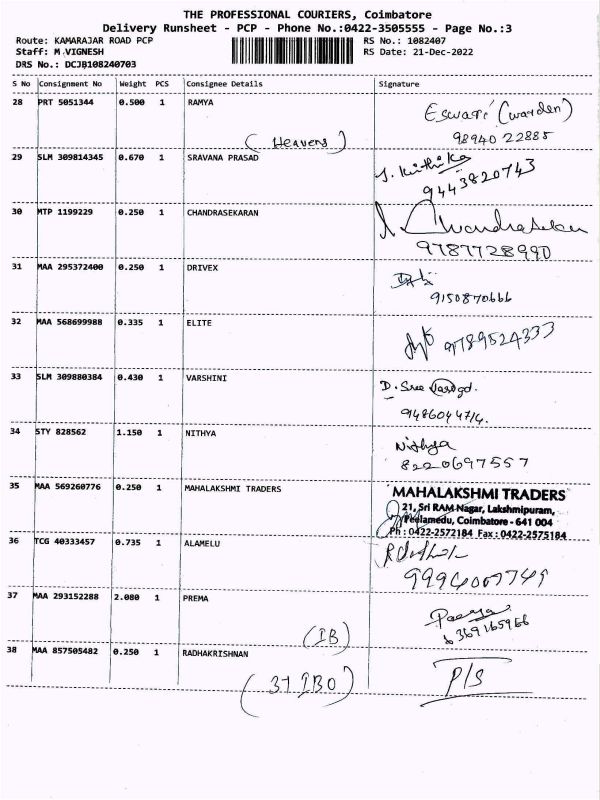 THE PROFESSIONAL COURIERS, Coimbatore
Delivery Runsheet - PCP - Phone No.:0422-3505555 - Page No.:3
Route: KAMARAJAR ROAD PCP RS No.: 1082407
Staff: M.VIGNESH RS Date: 21-Dec-2022
DRS No.: DCJB108240703
S No Consignment No Weight PCS Consignee Details Signature
28 PRT 5051344 0.500 1 RAMYA Eswari (warden)
(Heavens) 98940 22885
29 SLM 309814345 0.670 1 SRAVANA PRASAD
9443820743
30 MTP 1199229 0.250 1 CHANDRASEKARAN Chandrasekar
9787728990
31 MAA 295372400 0.250 1 DRIVEX
9150870666
32 MAA 568699988 0.335 1 ELITE 9789524333
33 SLM 309880384 0.430 1 VARSHINI D. Sree
9486044714.
34 STY 828562 1.150 1 NITHYA Nithya
8220697557
35 MAA 569260776 0.250 1 MAHALAKSHMI TRADERS MAHALAKSHMI TRADERS
21, Sri RAM Nagar, Lakshmipuram,
Peelamedu, Coimbatore - 641 004
Ph : 0422-2572184 Fax : 0422-2575184
36 TCG 40333457 0.735 1 ALAMELU
37 MAA 293152288 2.080 1 PREMA
(IB) 6369165966
38 MAA 857505482 0.250 1 RADHAKRISHNAN P/S
(37 IBO)